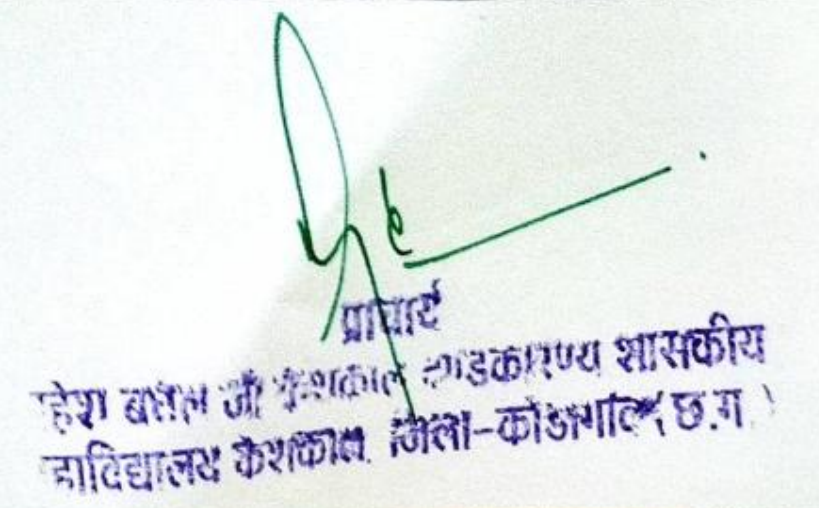 प्राचार्य
महेश बघेल जी केशकाल दण्डकारण्य शासकीय
महाविद्यालय केशकाल जिला-कोंडागांव (छ.ग.)